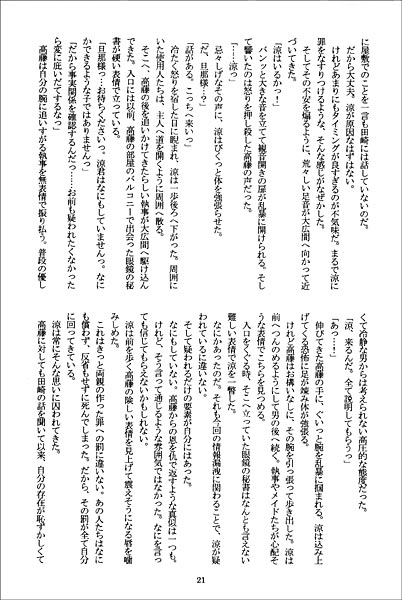 に屋敷でのことを一言も田崎には話していないのだ。
だから大丈夫。涼が原因なはずはない。
けれどあまりにもタイミングが良すぎるのが不気味だ。まるで涼に
罪をなすりつけるような、そんな感じがなぜかした。
そしてその不安を煽るように、荒々しい足音が大広間へ向かって近
づいてきた。
「涼はいるかっ！」
バンッと大きな音を立てて観音開きの扉が乱暴に開けられる。そし
て響いたのは怒りを押し殺した高藤の声だった。
「……涼っ」
忌々しげなその声に、涼はびくっと体を強張らせた。
「だ、旦那様…？」
「話がある。こっちへ来いっ」
冷たく怒りを宿した目に睨まれ、涼は一歩後ろへ下がった。周囲に
いた使用人たちは、主人へ道を開くように周囲へ散る。
そこへ、高藤の後を追いかけてきたらしい執事が大広間へ駆け込ん
できた。入口には以前、高藤の部屋のバルコニーで出会った眼鏡の秘
書が硬い表情で立っている。
「旦那様っ…お待ちくださいっ。涼君はなにもしていませんっ。なに
かできるような子ではありませんっ」
「だから事実関係を確認するんだっ……お前も疑われたくなかった
ら変に庇いだてするなっ」
高藤は自分の腕に追いすがる執事を無表情で振り払う。普段の優し
くて冷静な男からは考えられない高圧的な態度だった。
「涼、来るんだ。全て説明してもらうっ」
「あっ……！」
伸びてきた高藤の手に、ぐいっと腕を乱暴に掴まれる。涼は込み上
げてくる恐怖に足が竦み体が強張る。
けれど高藤はお構いなしに、その腕を引っ張って歩き出した。涼は
前へつんのめるようにして男の後へ続く。執事やメイドたちが心配そ
うな表情でこちらを見つめる。
入口をくぐる時、そこへ立っていた眼鏡の秘書はなんとも言えない
難しい表情で涼を一瞥した。
なにかあったのだ。それも今回の情報漏洩に関わることで、涼が疑
われているに違いない。
そして疑われるだけの要素が自分にはあった。
なにもしていない。高藤からの恩を仇で返すような真似は一つも。
けれど、そう言って通じるような雰囲気ではなかった。なにを言っ
ても信じてもらえないかもしれない。
涼は前を歩く高藤の険しい表情を見上げて震えそうになる唇を噛
みしめた。
これはきっと両親の作った罪への罰に違いない。あの人たちはなに
も償わず、反省もせずに死んでしまった。だから、その罰が全て自分
に回ってきている。
涼は常にそんな思いに囚われてきた。
高藤に対しても田崎の話を聞いて以来、自分の存在が恥ずかしくて
21